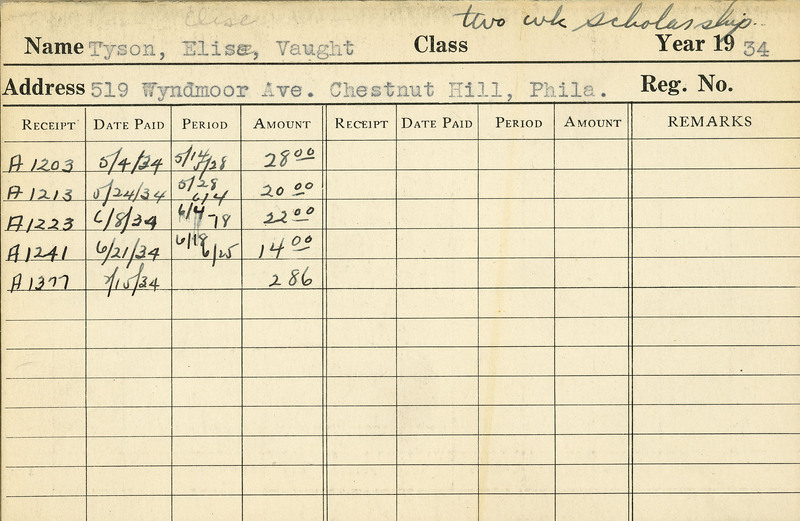 Elise
two wk scholarship
Name Tyson, Elise, Vaught Class Year 19 34
Address 519 Wyndmoor Ave. Chestnut Hill, Phila. Reg. No.
RECEIPT DATE PAID PERIOD AMOUNT RECEIPT DATE PAID PERIOD AMOUNT REMARKS
A 1203 5/4/34 5/14 5/28 28 00
A 1213 5/24/34 5/28 6/4 20 00
A 1223 6/8/34 6/4 22 00
A 1241 6/21/34 6/18 6/25 14 00
A 1377 /15/34 2 86